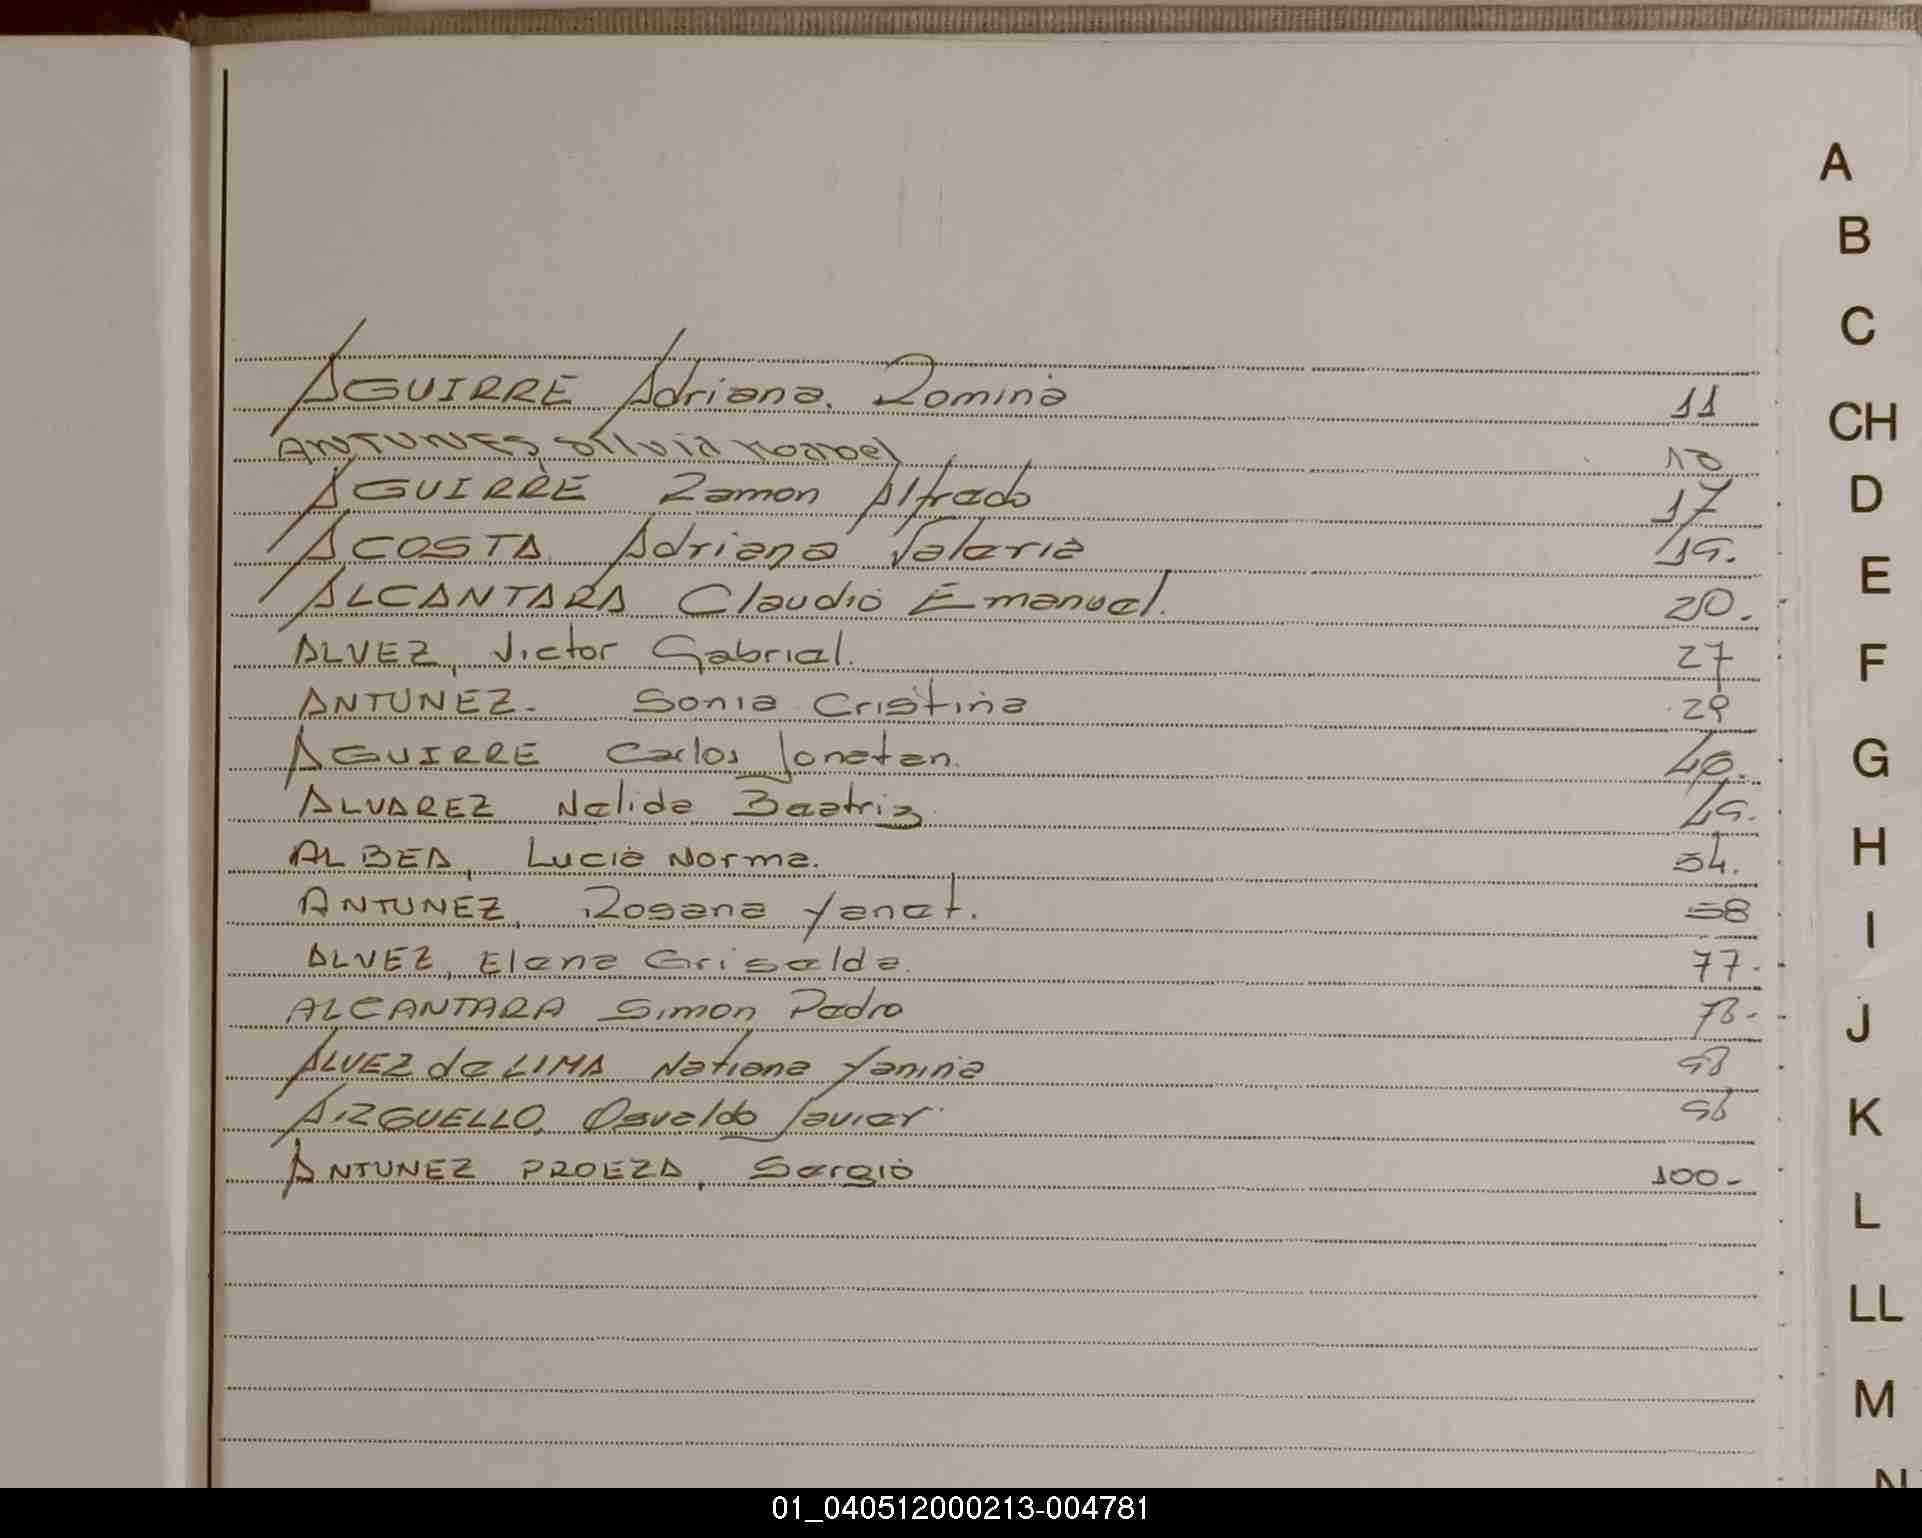 AGUIRRE Adriana Romina 11
ANTUNES, Silvia Isabel 13
AGUIRRE Ramon Alfredo 17
ACOSTA Adriana Valeria 19.
ALCANTARA Claudio Emanuel. 20.
ALVEZ, Victor Gabriel. 27
ANTUNEZ. Sonia Cristina 29
AGUIRRE Carlos Jonatan. 40.
ALVAREZ Nelida Beatriz 49.
ALBEA, Lucia Norma. 54.
ANTUNEZ, Rosana Yanet. 58
ALVEZ, Elena Griselda. 77.
ALCANTARA Simon Pedro
ALVEZ de LIMA Natiana Yanina
ARGUELLO, Osvaldo Javier
ANTUNEZ PROEZA, Sergio 100-
A
B
C
CH
D
E
F
G
H
I
J
K
L
LL
M
N
01_040512000213-004781